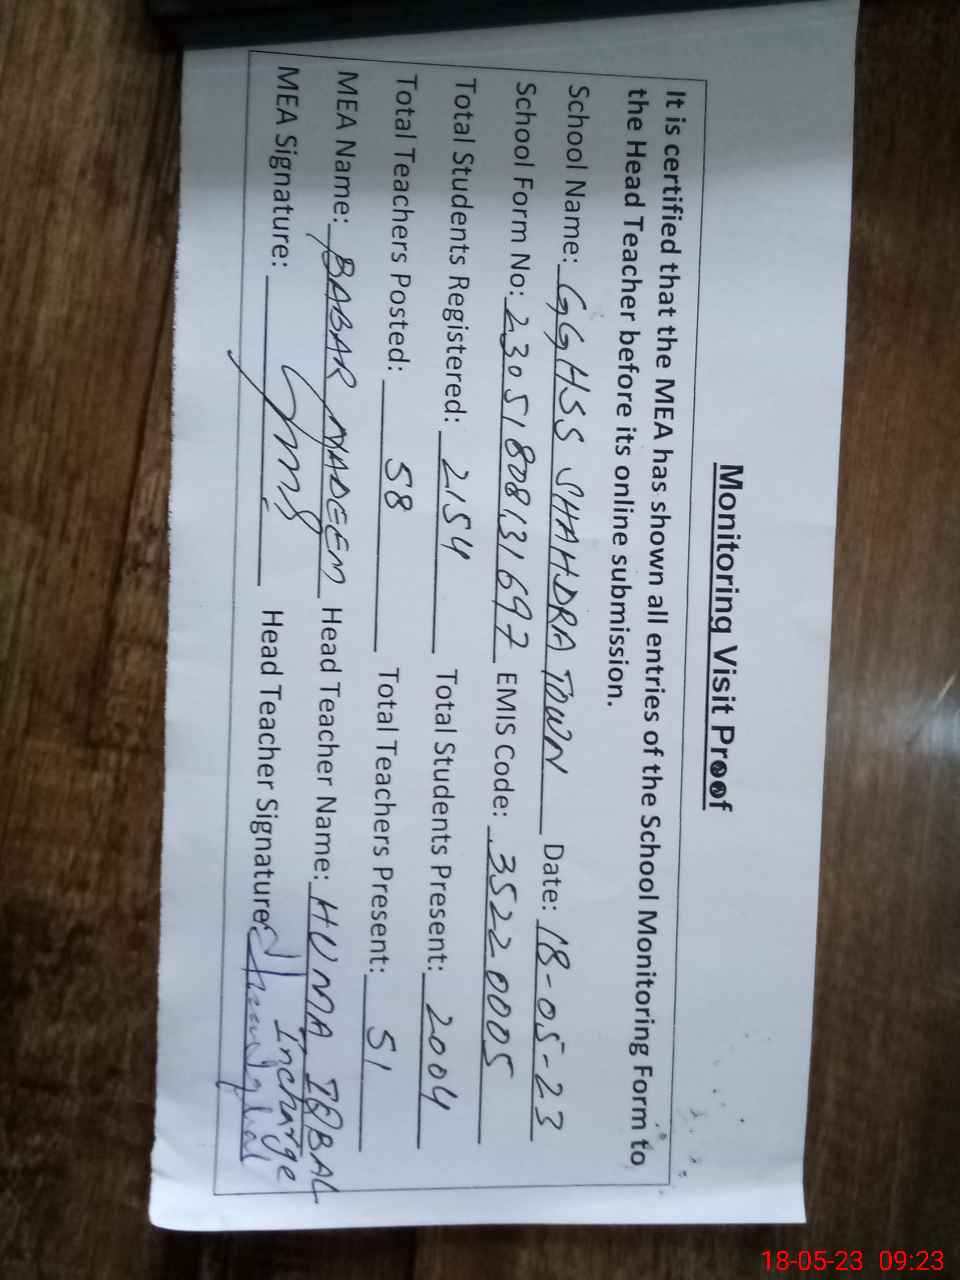 Monitoring Visit Proof
It is certified that the MEA has shown all entries of the School Monitoring Form to
the Head Teacher before its online submission.
School Name: GGHSS SHAHDRA TOWN Date: 18-05-23
School Form No: 23051808131697 EMIS Code: 35220005
Total Students Registered: 2154 Total Students Present: 2004
Total Teachers Posted: 58 Total Teachers Present: 51
MEA Name: BABAR NADEEM Head Teacher Name: HUMA IQBAL
Incharge
MEA Signature: Head Teacher Signature:
18-05-23 09:23